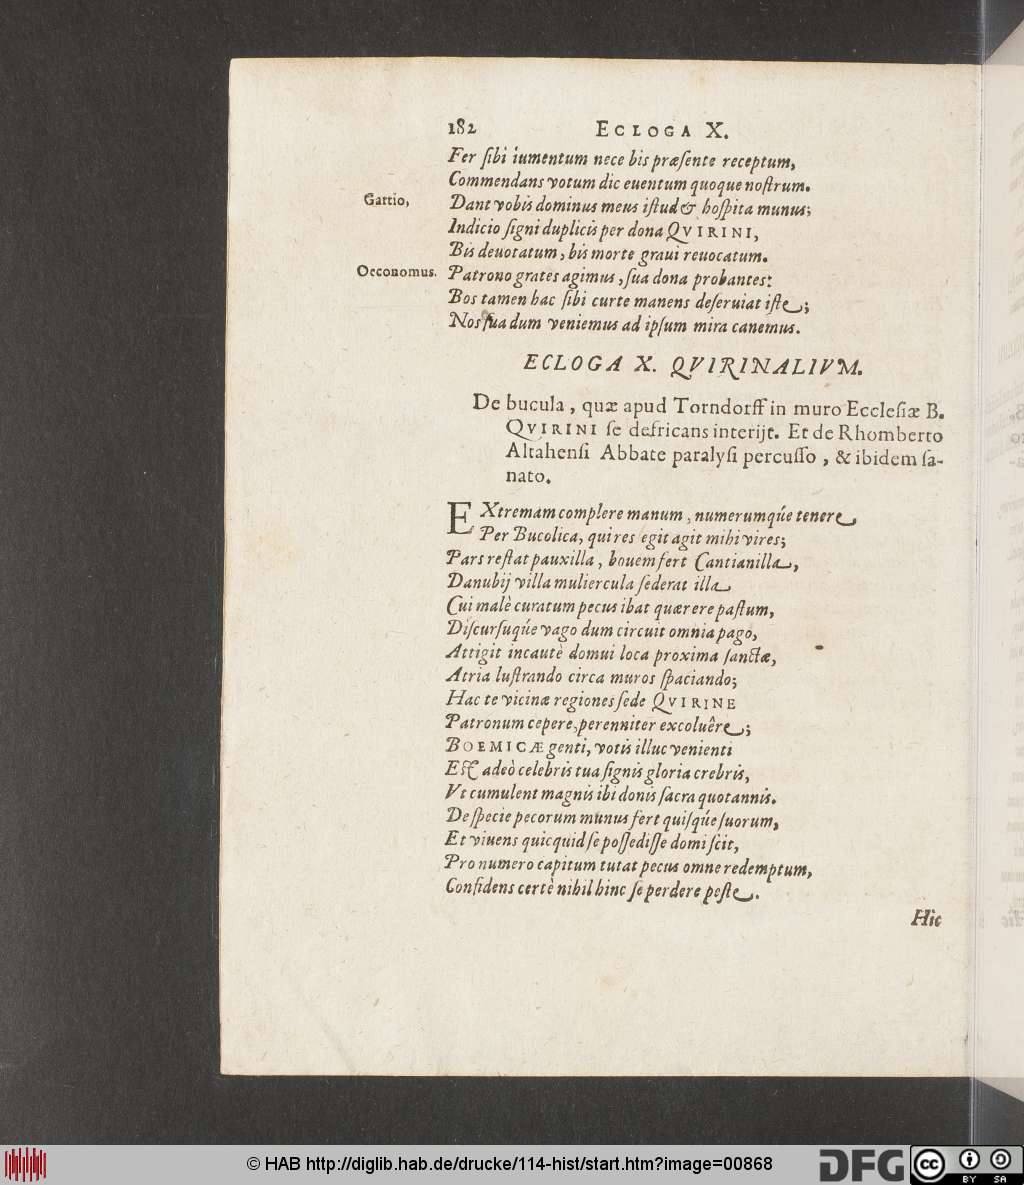 182 ECLOGA X.
Fer ſibi iumentum nece bis præſente receptum,
Commendans votum dic euentum quoque noſtrum.
Gartio, Dant vobis dominus meus iſtud & hoſpita munus;
Indicio ſigni duplicis per dona QVIRINI,
Bis deuotatum, bis morte graui reuocatum.
Oeconomus. Patrono grates agimus, ſua dona probantes:
Bos tamen hac ſibi curte manens deſeruiat iſte;
Nos ſua dum veniemus ad ipſum mira canemus.
ECLOGA X. QVIRINALIVM.
De bucula, quæ apud Torndorff in muro Eccleſiæ B.
QVIRINI ſe defricans interijt. Et de Rhomberto
Altahenſi Abbate paralyſi percuſſo, & ibidem ſa-
nato.
EXtremam complere manum, numerumq́ue tenere
Per Bucolica, qui res egit agit mihi vires;
Pars reſtat pauxilla, bouem fert Cantianilla,
Danubij villa muliercula ſederat illa
Cui malè curatum pecus ibat quærere paſtum,
Diſcurſuq́ue vago dum circuit omnia pago,
Attigit incautè domui loca proxima ſanctæ,
Atria luſtrando circa muros ſpaciando;
Hac te vicinæ regiones ſede QVIRINE
Patronum cepere, perenniter excoluêre;
BOEMICÆ genti, votis illuc venienti
Eſt adeò celebris tua ſignis gloria crebris,
Vt cumulent magnis ibi donis ſacra quotannis.
De ſpecie pecorum munus fert quiſq́ue ſuorum,
Et viuens quicquid ſe poſſediſſe domi ſcit,
Pro numero capitum tutat pecus omne redemptum,
Confidens certè nihil hinc ſe perdere peſte.
Hic
© HAB http://diglib.hab.de/drucke/114-hist/start.htm?image=00868
DFG
CC BY SA